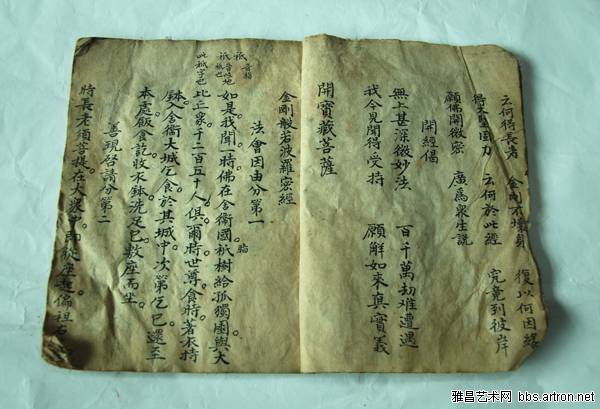 云何得長壽 金剛不壞身 復以何因緣
得大堅固力 云何於此經 究竟到彼岸
願佛開微密 廣為衆生説
開經偈
無上甚深微妙法 百千萬劫难遭遇
我今見聞得受持 願解如來真實義
開寶藏菩薩
金剛般若波羅密經
法會因由分第一
如是我聞。一時佛在舍衛國。祇樹給孤獨園。與大
比丘衆。千二百五十人俱。爾時世尊。食時。著衣持
鉢。入舍衛大城。乞食。於其城中。次第乞已。還至
本處。飯食訖。收衣鉢。洗足已。敷座而坐。
善現啓請分第二
時長老須菩提。在大衆中。即從座起。偏袒右
雅昌艺术网 bbs.artron.net